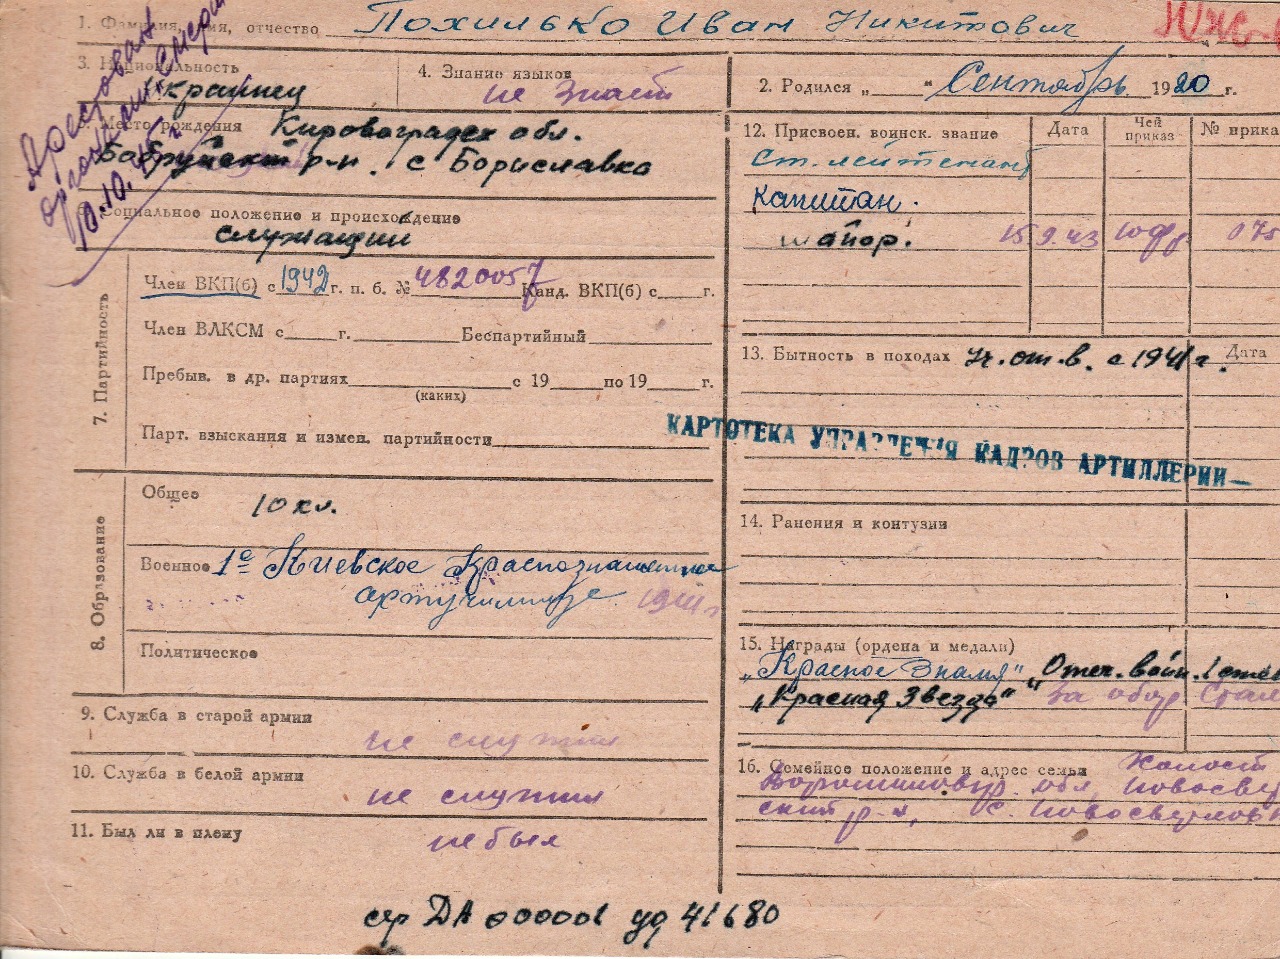 1. Фамилия, имя, отчество Похилько Иван Никитович
Арестован
органами "Смерш
10.10.45 г.
3. Национальность
Украинец
4. Знание языков
не знает
2. Родился „ “ Сентябрь 1920 г.
5. Место рождения Кировоградск обл.
Бобринский р-н. с Бориславка
6. Социальное положение и происхождение
служащий
7. Партийность
Член ВКП(б) с 1942 г. п. б. № 4820057 Канд. ВКП(б) с г.
Член ВЛКСМ с г. Беспартийный
Пребыв. в др. партиях с 19 по 19 г.
(каких)
Парт. взыскания и измен. партийности
8. Образование
Общее 10 кл.
Военное 1е Киевское Краснознаменное
артучилище 1941 г
Политическое
9. Служба в старой армии
не служил
10. Служба в белой армии
не служил
11. Был ли в плену
не был
12. Присвоен. воинск. звание Дата Чей приказ № прика
Ст. лейтенант
Капитан.
Майор. 15 9.43 075
13. Бытность в походах Дата
Уч. от. в. с 1941 г.
КАРТОТЕКА УПРАВЛЕНИЯ КАДРОВ АРТИЛЛЕРИИ—
14. Ранения и контузии
15. Награды (ордена и медали)
„Красное Знамя" „Отеч. войн. 1 степ
„Красная Звезда" За обор Стал
16. Семейное положение и адрес семьи Холост
Ворошиловгр. обл, Новосвет
ский р-н, с. Новосветлов
сер ДА 000001 уд 41680